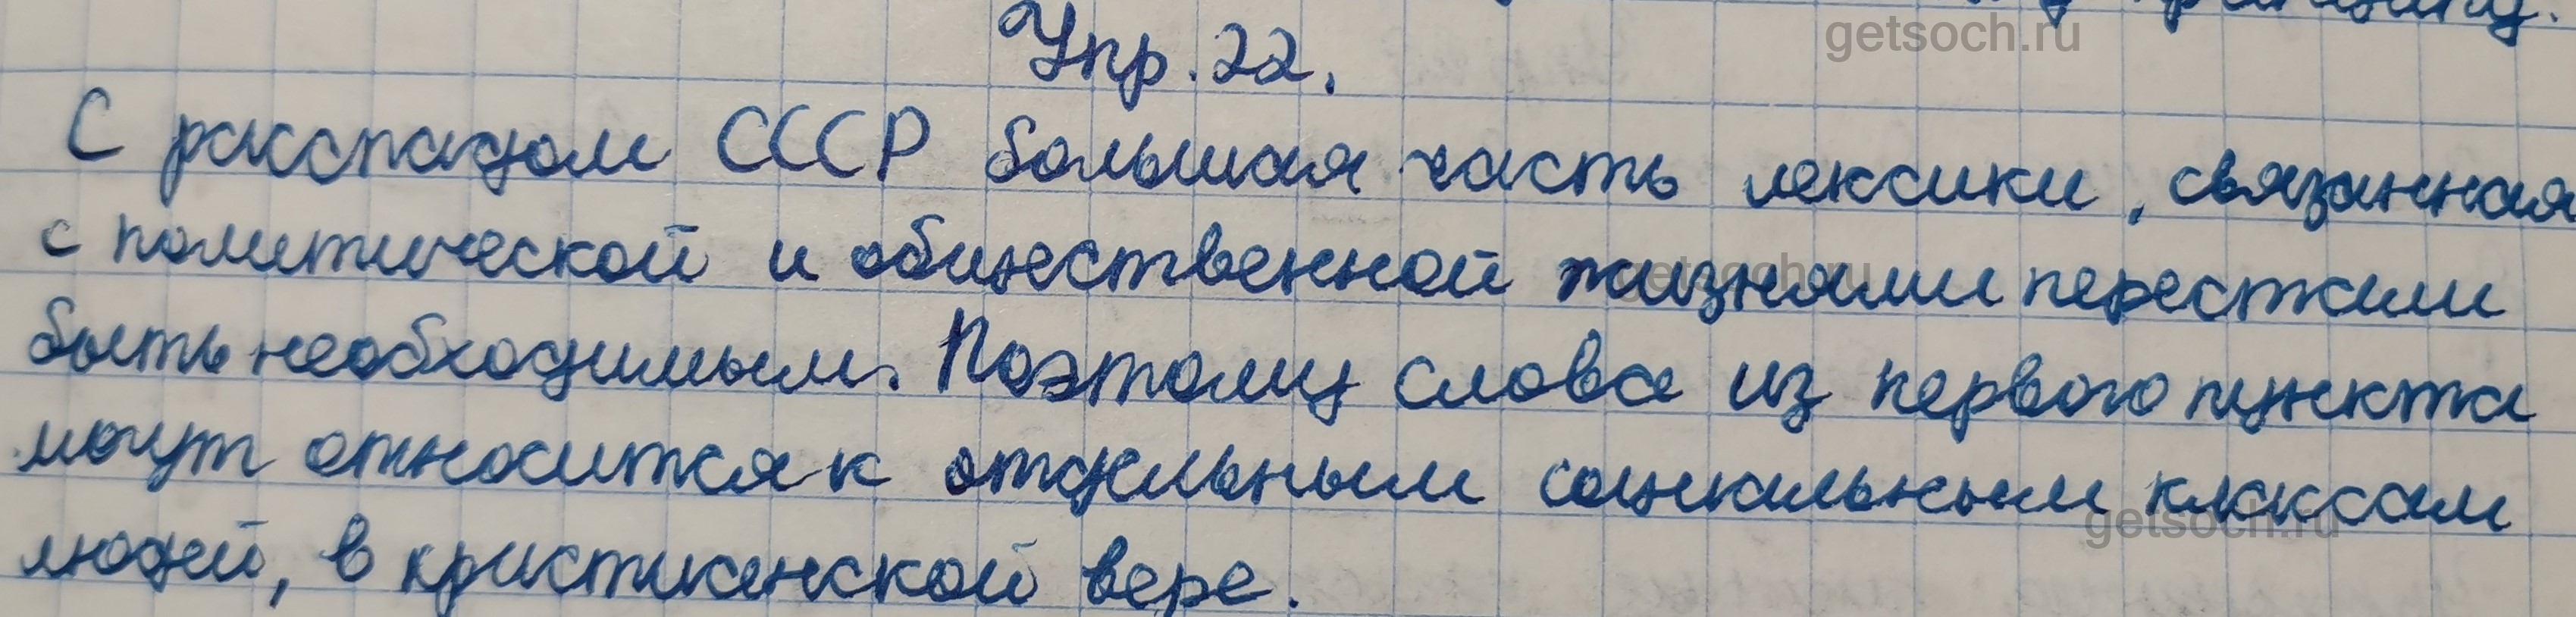 Упр. 22.
С расспадом СССР большая часть лексики, связанная
с политической и общественной жизнями перестали
быть необходимым. Поэтому слова из первого пункта
могут относится к отдельным социальным классам
людей, в християнской вере.
getsoch.ru
getsoch.ru
getsoch.ru